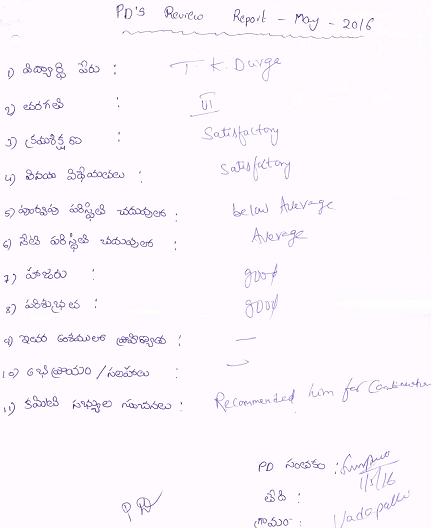 PD's Review Report - May - 2016
1) విద్యార్థి పేరు : T. K. Durga
2) తరగతి : VI
3) క్రమశిక్షణ : Satisfactory
4) వినయ విధేయతలు : Satisfactory
5) పూర్వపు పరిస్థితి చదువులో : below Average
6) నేటి పరిస్థితి చదువులో : Average
7) హాజరు : good
8) పరిశుభ్రత : good
9) ఇతర అంశములలో ప్రావీణ్యత : —
10) అభిప్రాయం / సలహాలు : —
11) కమిటి సభ్యుల సూచనలు : Recommended him for
PD సంతకం :
తేది : 1/5/16
గ్రామం : Vadapalli